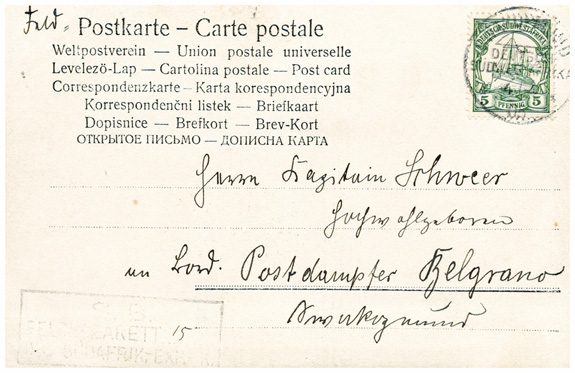 Feld- Postkarte – Carte postale
Weltpostverein — Union postale universelle
Levelező-Lap — Cartolina postale — Post card
Correspondenzkarte — Karta korespondencyjna
Korrespondenční listek — Briefkaart
Dopisnice — Brefkort — Brev-Kort
ОТКРЫТОЕ ПИСЬМО — ДОПИСНА КАРТА
DEUTSCH-SÜDWESTAFRIKA
5 PFENNIG 5
Herrn Kapitain Schweer
Hochwohlgeboren
an Bord. Postdampfer Belgrano
Swakopmund
15